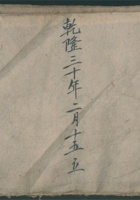 乾隆三十年二月十五立